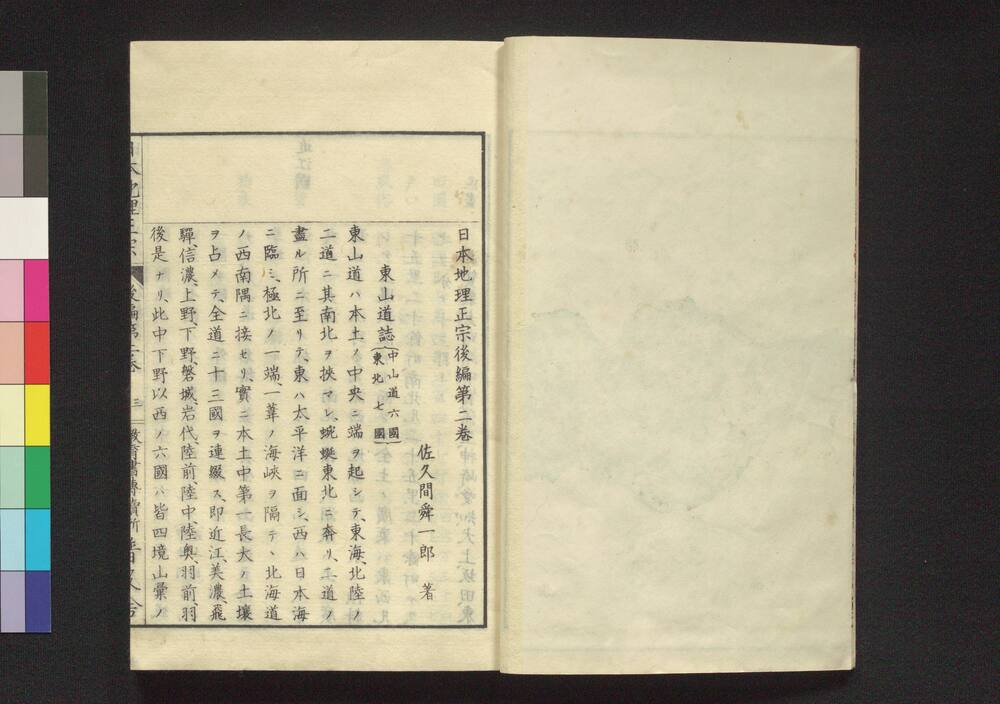 日本地理正宗後編第二巻
佐久間舜一郎 著
東山道誌 中山道六國 東北七國
東山道ハ本土ノ中央ニ端ヲ起シテ、東海、北陸ノ
二道ニ其南北ヲ挾マレ、蜿蜒東北ニ奔リ、二道ノ
盡ル所ニ至リテ、東ハ太平洋ニ面シ、西ハ日本海
ニ臨ミ、極北ノ一端、一葦ノ海峽ヲ隔テヽ北海道
ノ西南隅ニ接セリ、實ニ本土中第一長大ノ土壤
ヲ占メテ、全道ニ十三國ヲ連綴ス、即近江、美濃、飛
驒、信濃、上野、下野、磐城、岩代、陸前、陸中、陸奧、羽前、羽
後是ナリ、此中下野以西ノ六國ハ皆四境山彙ノ
日本地理正宗 後編第二巻 三